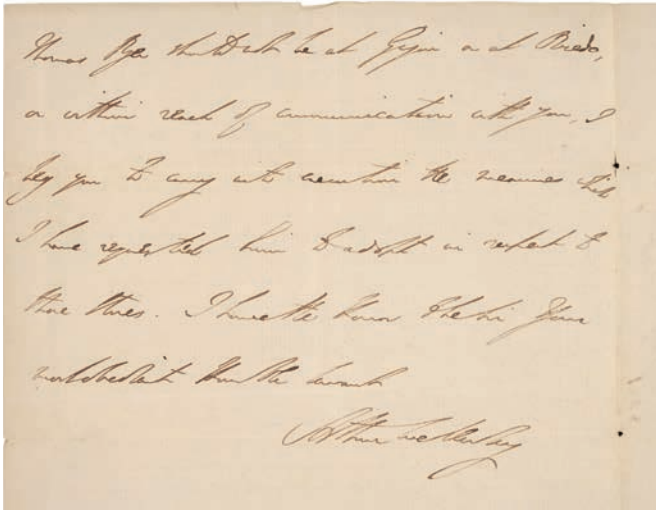 Thomas Dyer should not be at Gijon or at Oviedo,
or within reach of communication with you, I
beg you to carry into execution the measures which
I have requested him to adopt in respect to
those stores. I have the honor to be Sir Your
most obedient Humble Servant
Arthur Wellesley